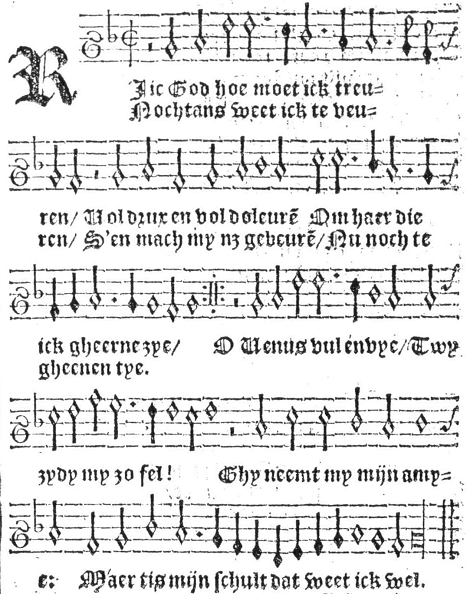 RJic God hoe moet ick treu=
Nochtans weet ick te veu=
ren/ Vol drux en vol doleurē Om haer die
ren/ S'en mach my nz gebeurē/ Nu noch te
ick gheerne zye/ O Venus vul envye/ Twy
gheenen tye.
zydy my zo fel! Ghy neemt my mijn amy=
e: Maer tis mijn schult dat weet ick wel.